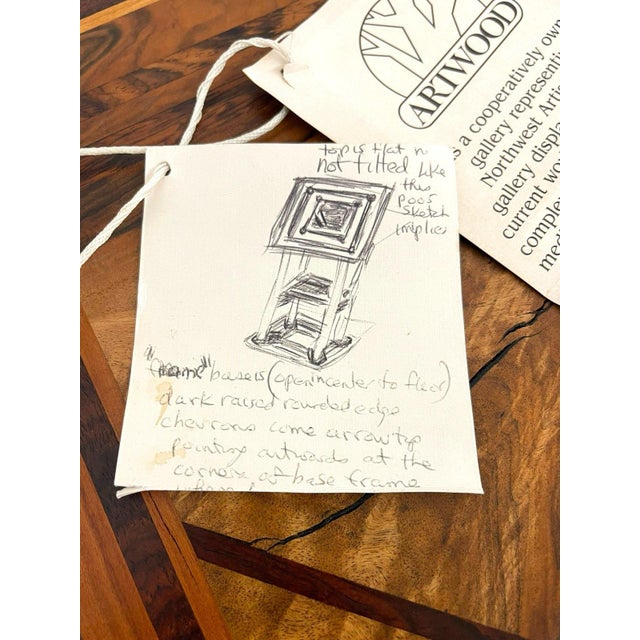 top is flat n
not tilted like
this
poor
sketch
implies
"frame" base is (open in center to floor)
dark raised rounded edge
chevrons come arrow top
pointing outwards at the
corners of base frame
ARTWOOD
s a cooperatively own
gallery representi
Northwest Artis
gallery displa
current wo
comple
med